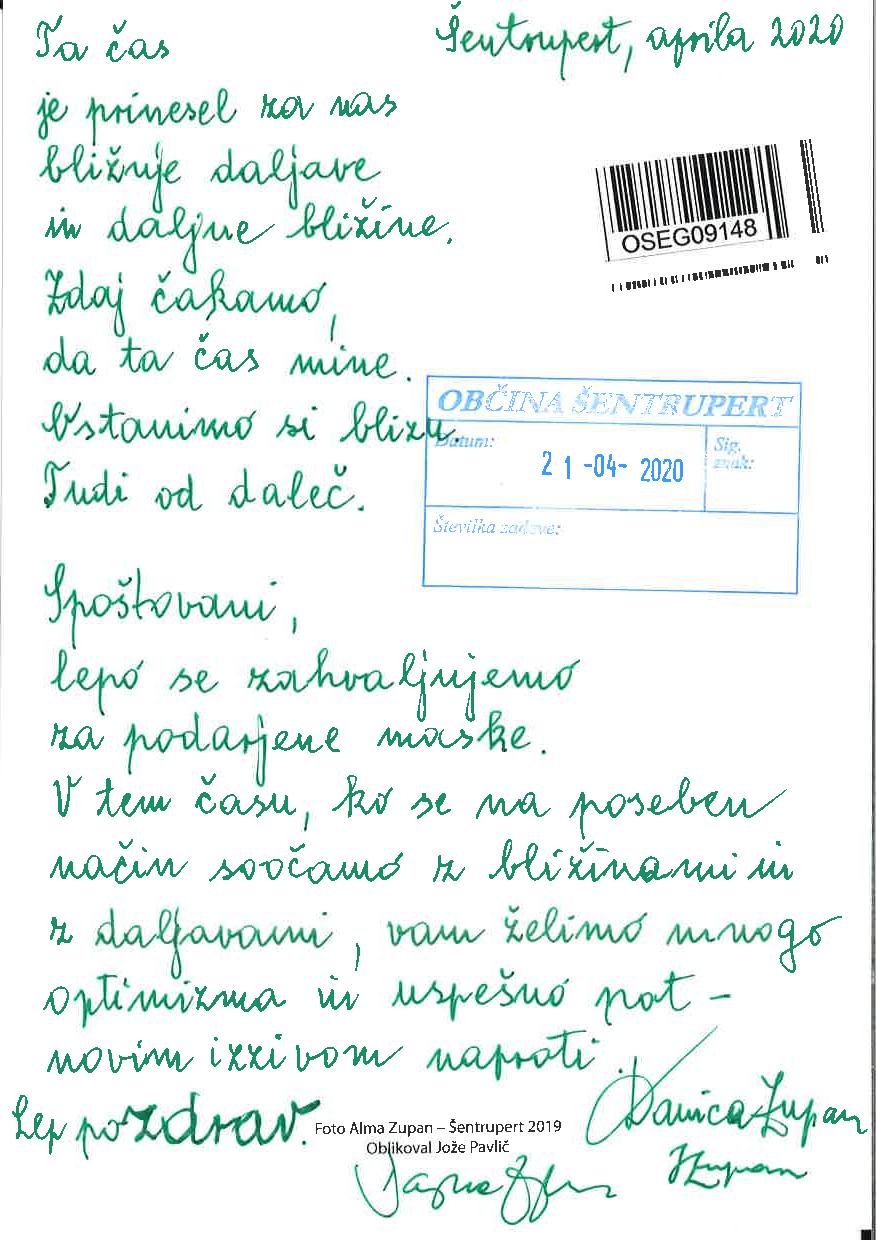 Ta čas
Šentrupert, aprila 2020
je prinesel za nas
bližnje daljave
in daljne bližine.
Zdaj čakamo,
da ta čas mine.
Ostanimo si blizu.
Tudi od daleč.
OSEG09148
OBČINA ŠENTRUPERT
Datum:
21-04-2020
Sig. znak:
Številka zadeve:
Spoštovani,
lepo se zahvaljujemo
za podarjene maske.
V tem času, ko se na poseben
način soočamo z bližinami in
z daljavami, vam želimo mnogo
optimizma in uspešno pot -
novim izzivom naproti.
Lep pozdrav.
Danica Zupan
Foto Alma Zupan – Šentrupert 2019
Oblikoval Jože Pavlič
Zupan